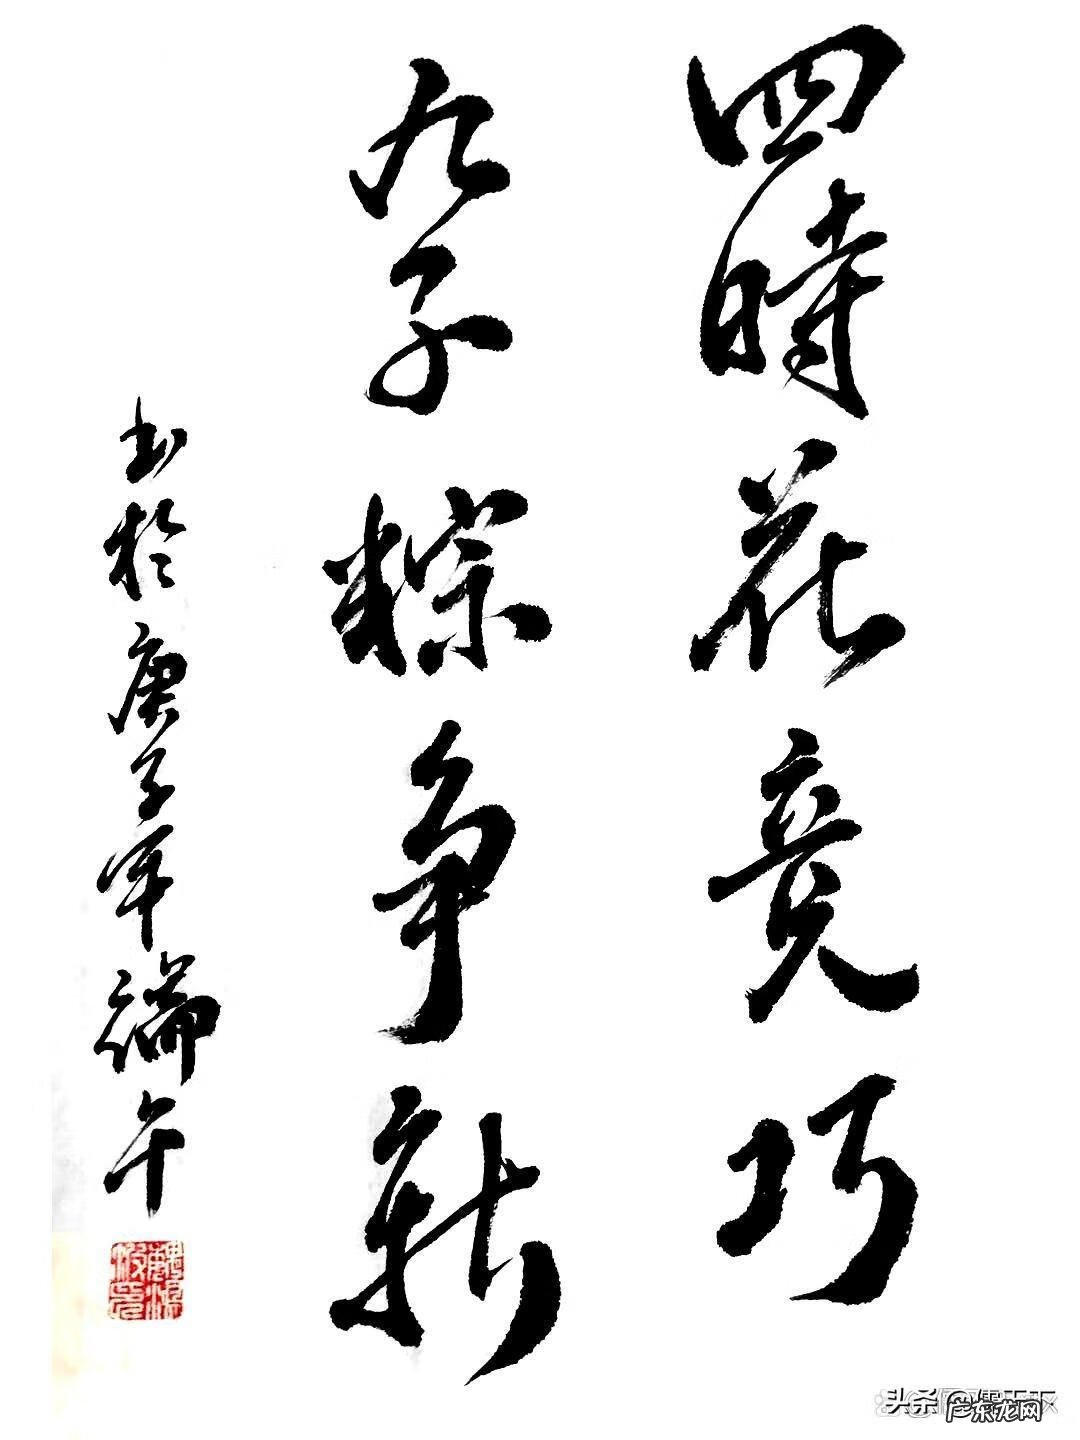 四時花竞巧
九子粽争新
书於庚子年端午
头条
广东龙网